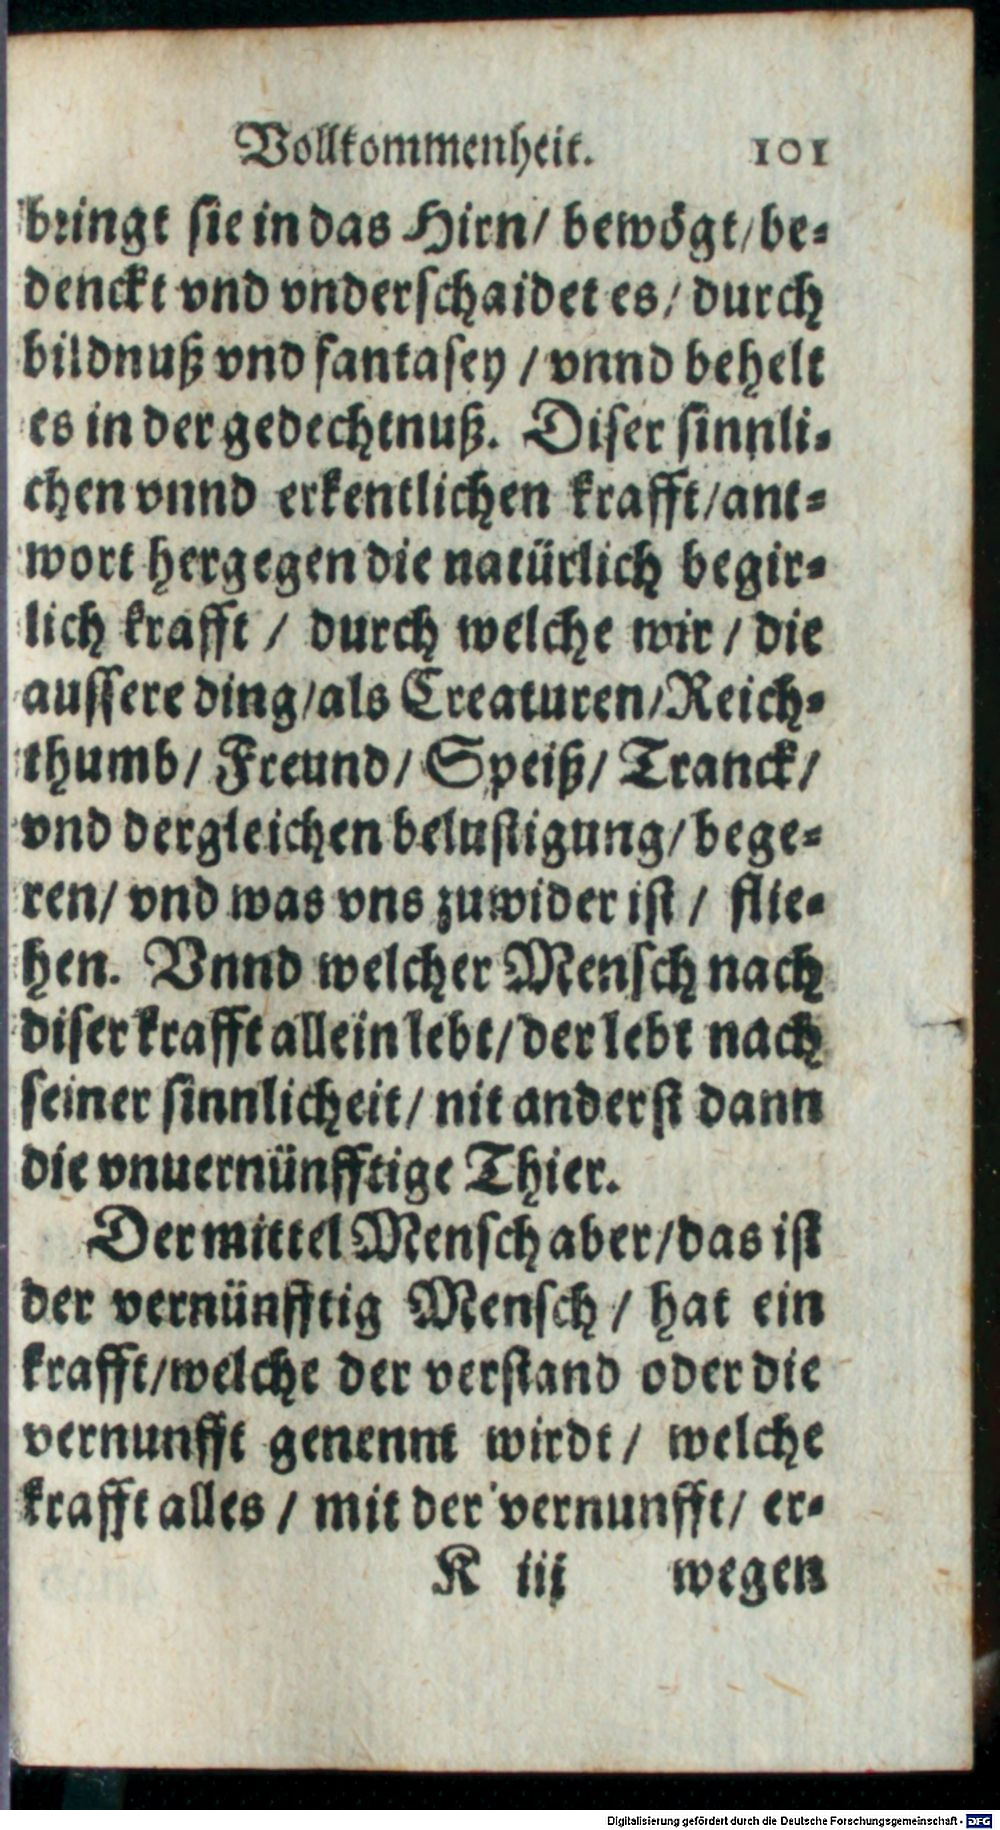 Vollkommenheit. 101
bringt sie in das Hirn/ bewögt/be-
denckt vnd vnderschaidet es/ durch
bildnuß vnd fantasey / vnnd behelt
es in der gedechtnuß. Diser sinnli-
chen vnnd erkentlichen krafft/ant-
wort hergegen die natürlich begir-
lich krafft / durch welche wir / die
aussere ding/als Creaturen/Reich-
thumb/ Freund/ Speiß/ Tranck/
vnd dergleichen belustigung/ bege-
ren/ vnd was vns zuwider ist / flie-
hen. Vnnd welcher Mensch nach
diser krafft allein lebt/der lebt nach
seiner sinnlicheit/ nit anderst dann
die vnuernünfftige Thier.
Der mittel Mensch aber/das ist
der vernünfftig Mensch / hat ein
krafft/welche der verstand oder die
vernunfft genennt wirdt / welche
krafft alles / mit der vernunfft/ er-
K iij wegen
Digitalisierung gefördert durch die Deutsche Forschungsgemeinschaft - DFG